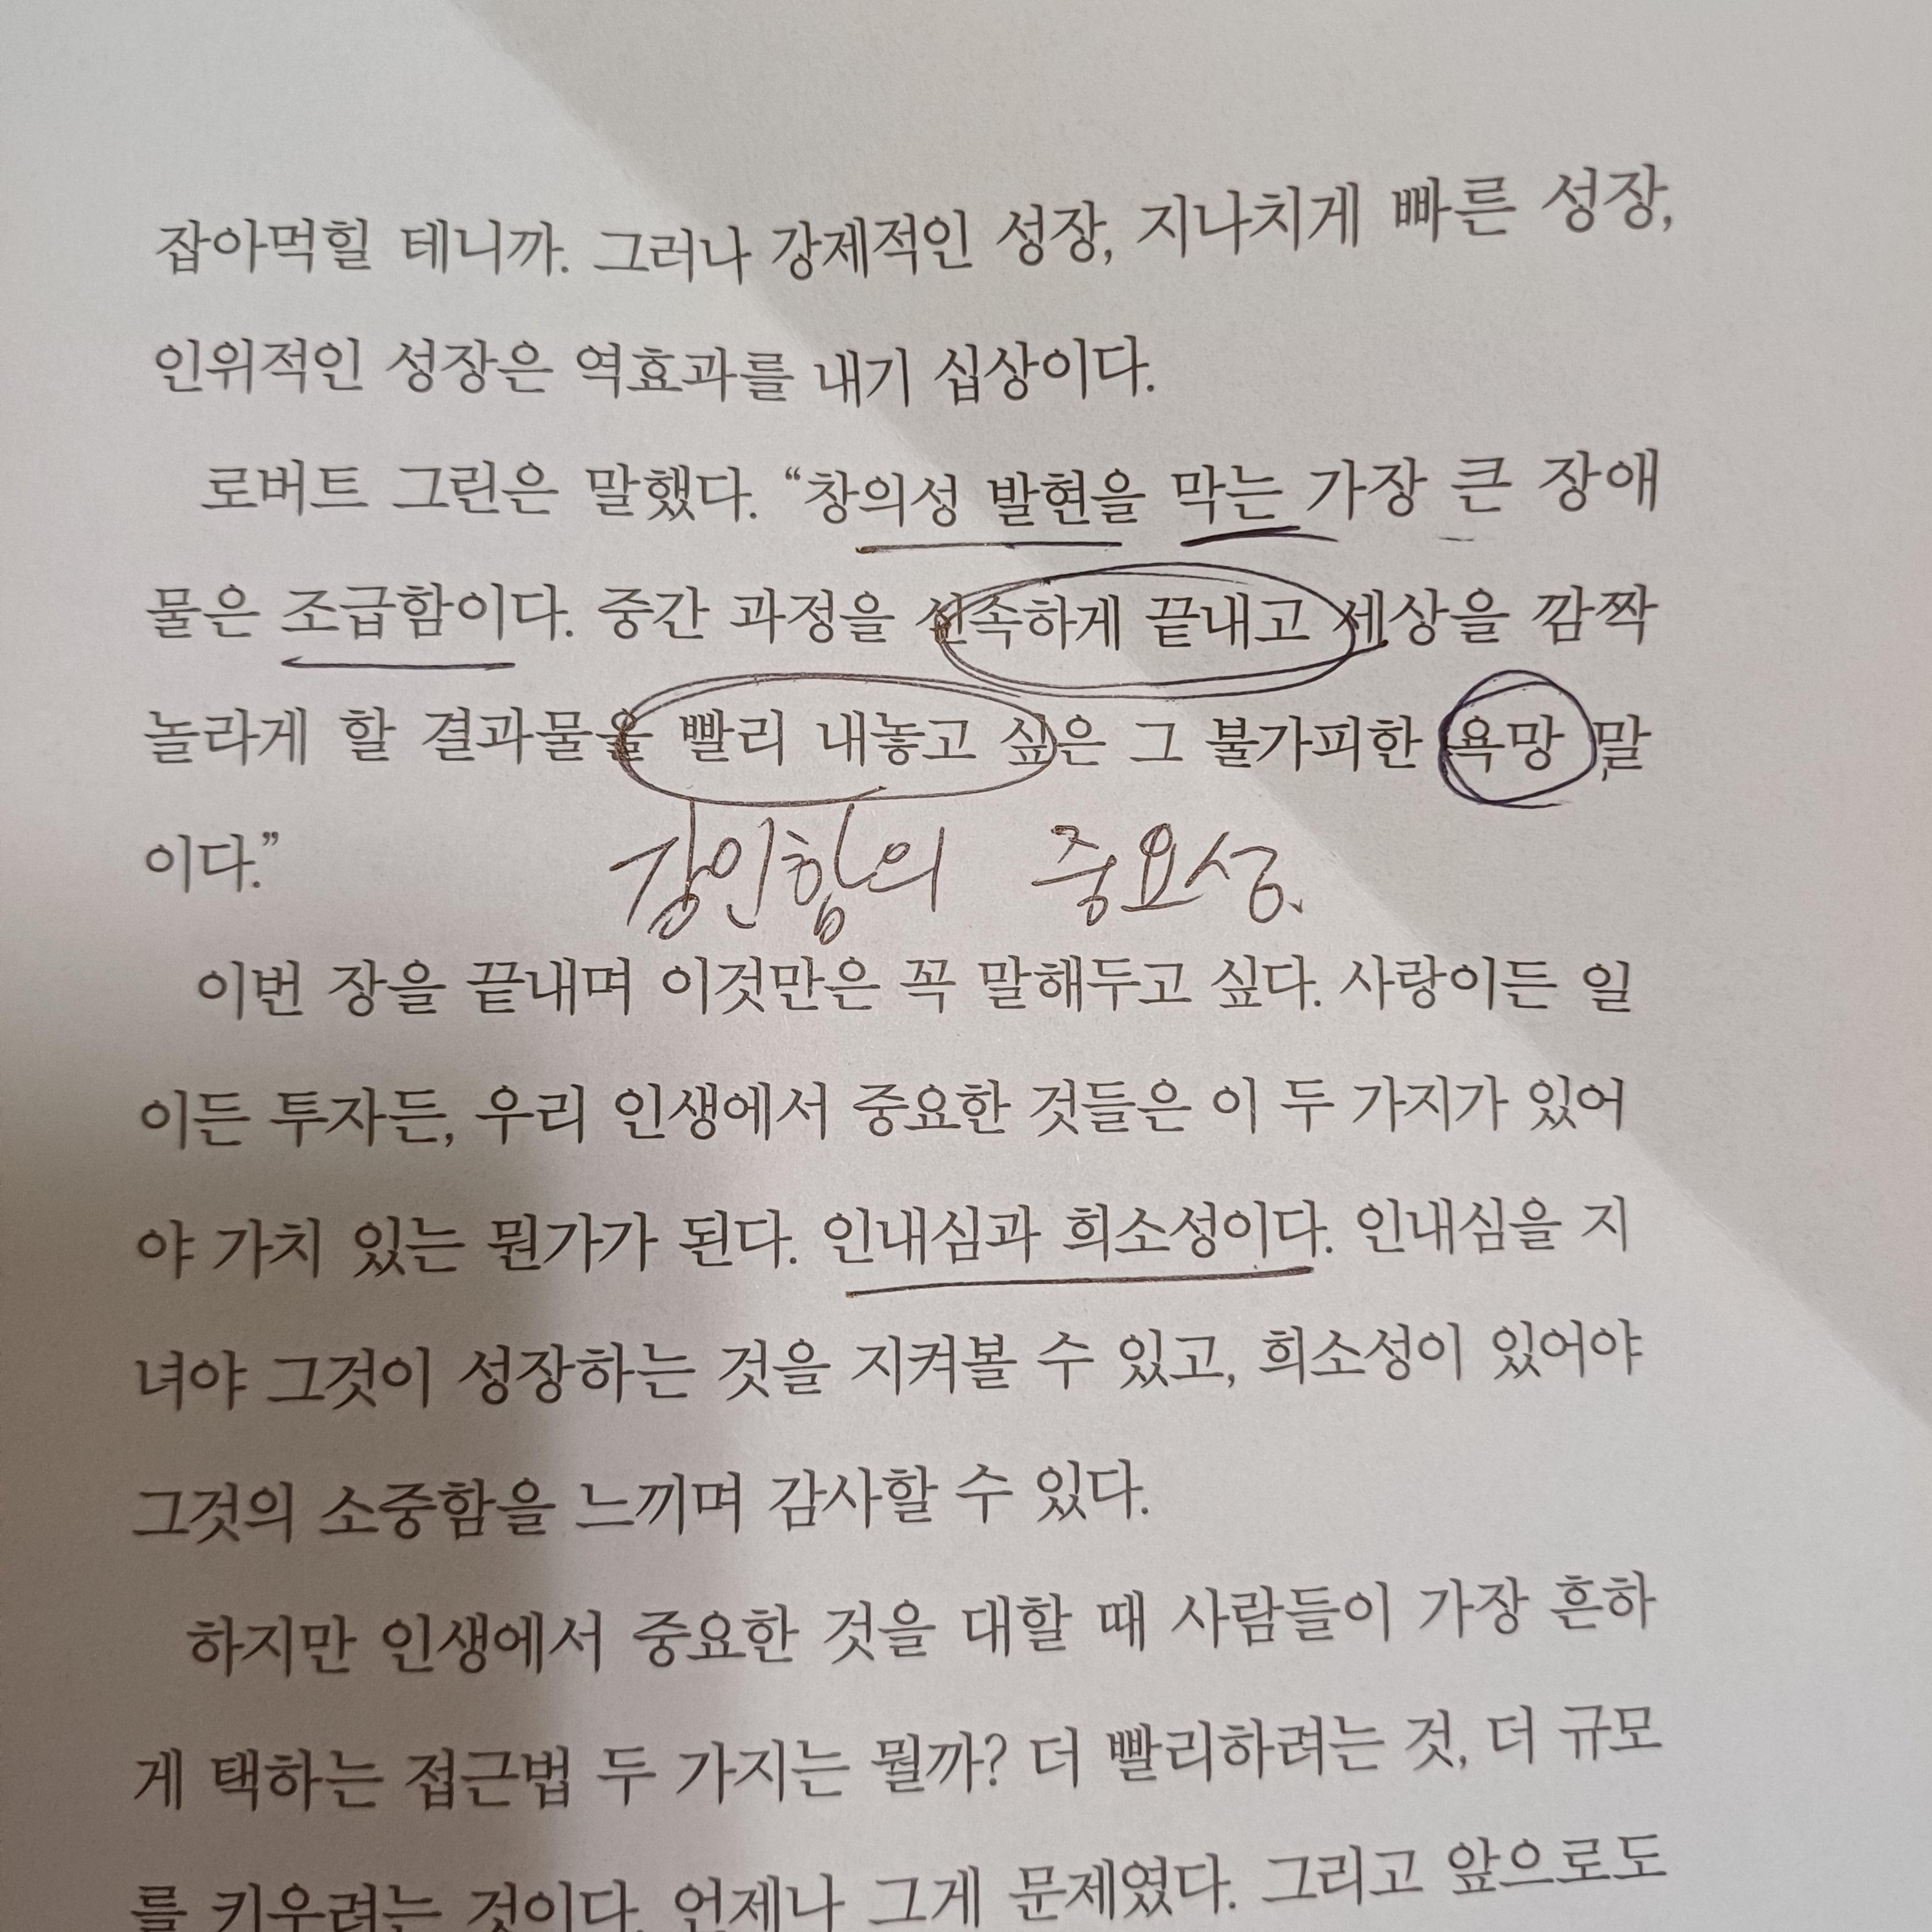 잡아먹힐 테니까. 그러나 강제적인 성장, 지나치게 빠른 성장,
인위적인 성장은 역효과를 내기 십상이다.
로버트 그린은 말했다. “창의성 발현을 막는 가장 큰 장애
물은 조급함이다. 중간 과정을 신속하게 끝내고 세상을 깜짝
놀라게 할 결과물을 빨리 내놓고 싶은 그 불가피한 욕망 말
이다.”
강인함의 중요성.
이번 장을 끝내며 이것만은 꼭 말해두고 싶다. 사랑이든 일
이든 투자든, 우리 인생에서 중요한 것들은 이 두 가지가 있어
야 가치 있는 뭔가가 된다. 인내심과 희소성이다. 인내심을 지
녀야 그것이 성장하는 것을 지켜볼 수 있고, 희소성이 있어야
그것의 소중함을 느끼며 감사할 수 있다.
하지만 인생에서 중요한 것을 대할 때 사람들이 가장 흔하
게 택하는 접근법 두 가지는 뭘까? 더 빨리하려는 것, 더 규모
를 키우려는 것이다. 언제나 그게 문제였다. 그리고 앞으로도